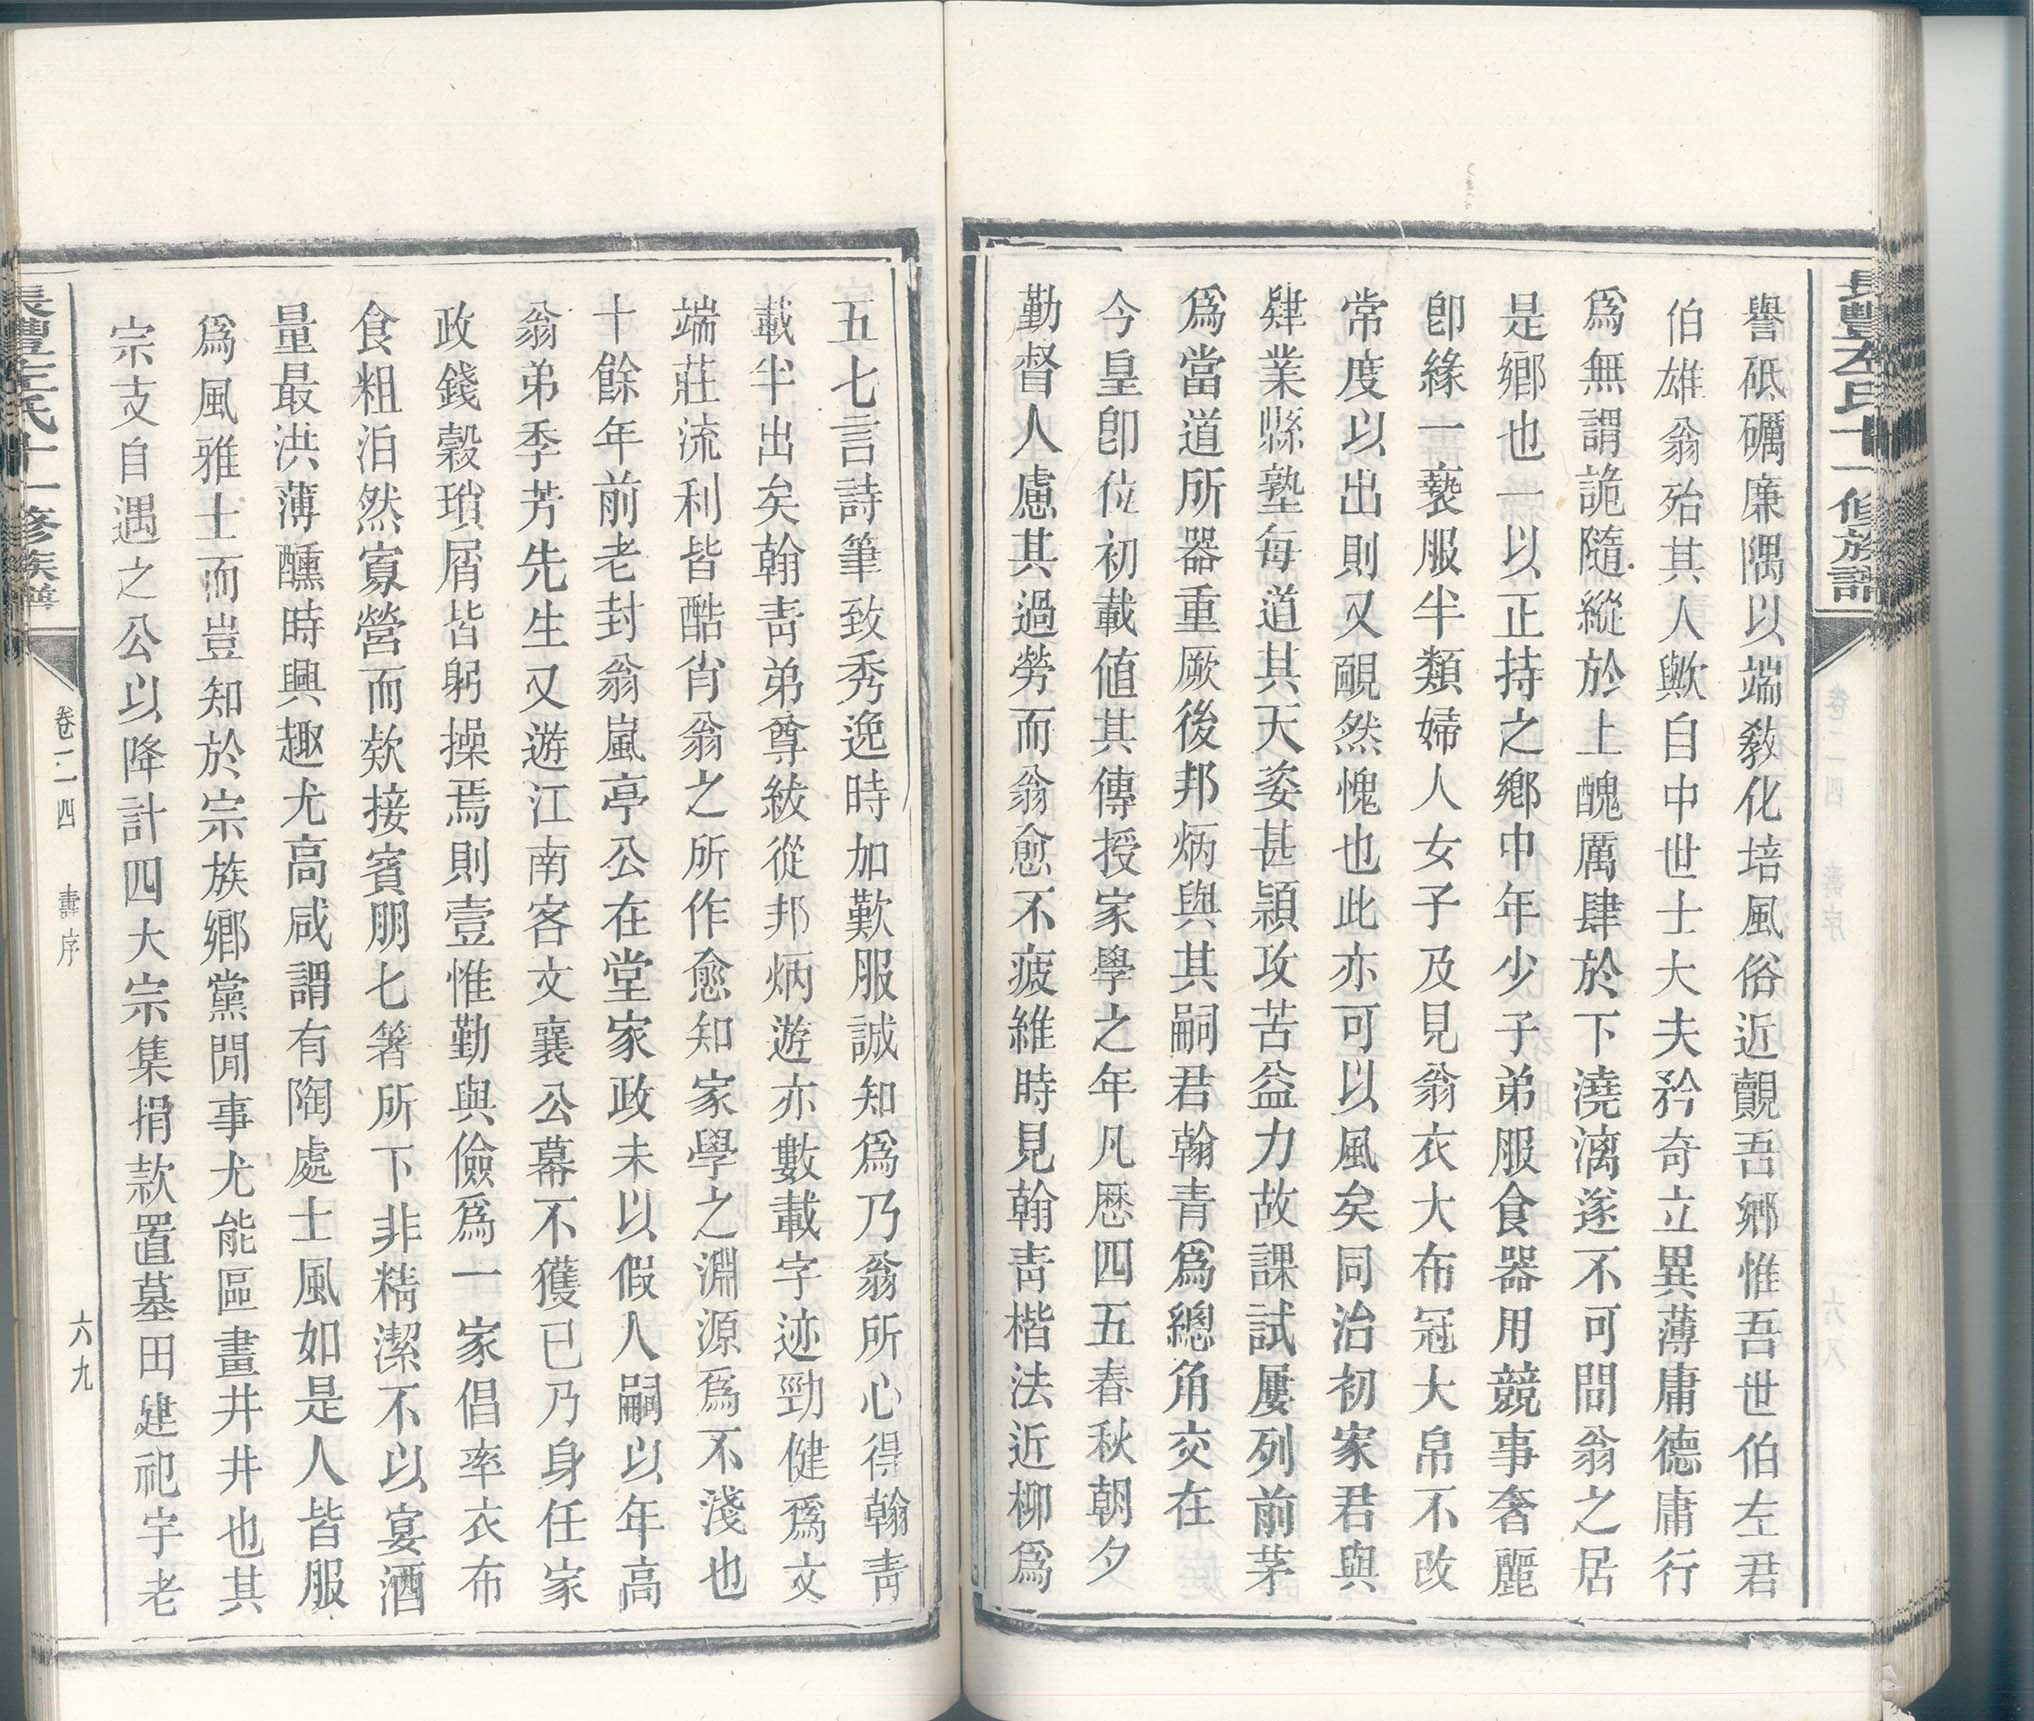 長豐左氏十一修族譜
卷二四 壽序 六八
譽砥礪廉隅以端教化培風俗近覿吾鄉惟吾世伯左君
伯雄翁殆其人歟自中世士大夫矜奇立異薄庸德庸行
爲無謂詭隨縱於上醜厲肆於下澆漓遂不可問翁之居
是鄉也一以正持之鄉中年少子弟服食器用競事奢麗
卽緣一褻服半類婦人女子及見翁衣大布冠大帛不改
常度以出則又靦然愧也此亦可以風矣同治初家君與
肄業縣塾每道其天姿甚穎攻苦益力故課試屢列前茅
爲當道所器重厥後邦炳與其嗣君翰青爲總角交在
今皇卽位初載値其傳授家學之年凡歷四五春秋朝夕
勤督人慮其過勞而翁愈不疲維時見翰青楷法近柳爲
五七言詩筆致秀逸時加歎服誠知爲乃翁所心得翰青
載半出矣翰青弟尊紱從邦炳遊亦數載字迹勁健爲文
端莊流利皆酷肖翁之所作愈知家學之淵源爲不淺也
十餘年前老封翁嵐亭公在堂家政未以假人嗣以年高
翁弟季芳先生又遊江南客文襄公幕不獲已乃身任家
政錢穀瑣屑皆躬操焉則壹惟勤與儉爲一家倡率衣布
食粗泊然寡營而欵接賓朋匕箸所下非精潔不以宴酒
量最洪薄醺時興趣尤高咸謂有陶處士風如是人皆服
爲風雅士而豈知於宗族鄉黨閒事尤能區畫井井也其
宗支自遇之公以降計四大宗集捐款置墓田建祀宇老
長豐左氏十一修族譜
卷二四 壽序 六九